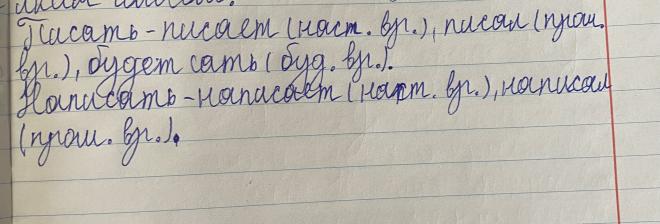 Писать-писает (наст. вр.), писал (прош.
вр.), будет сать (буд. вр.).
Написать-написает (наст. вр.), написал
(прош. вр.).